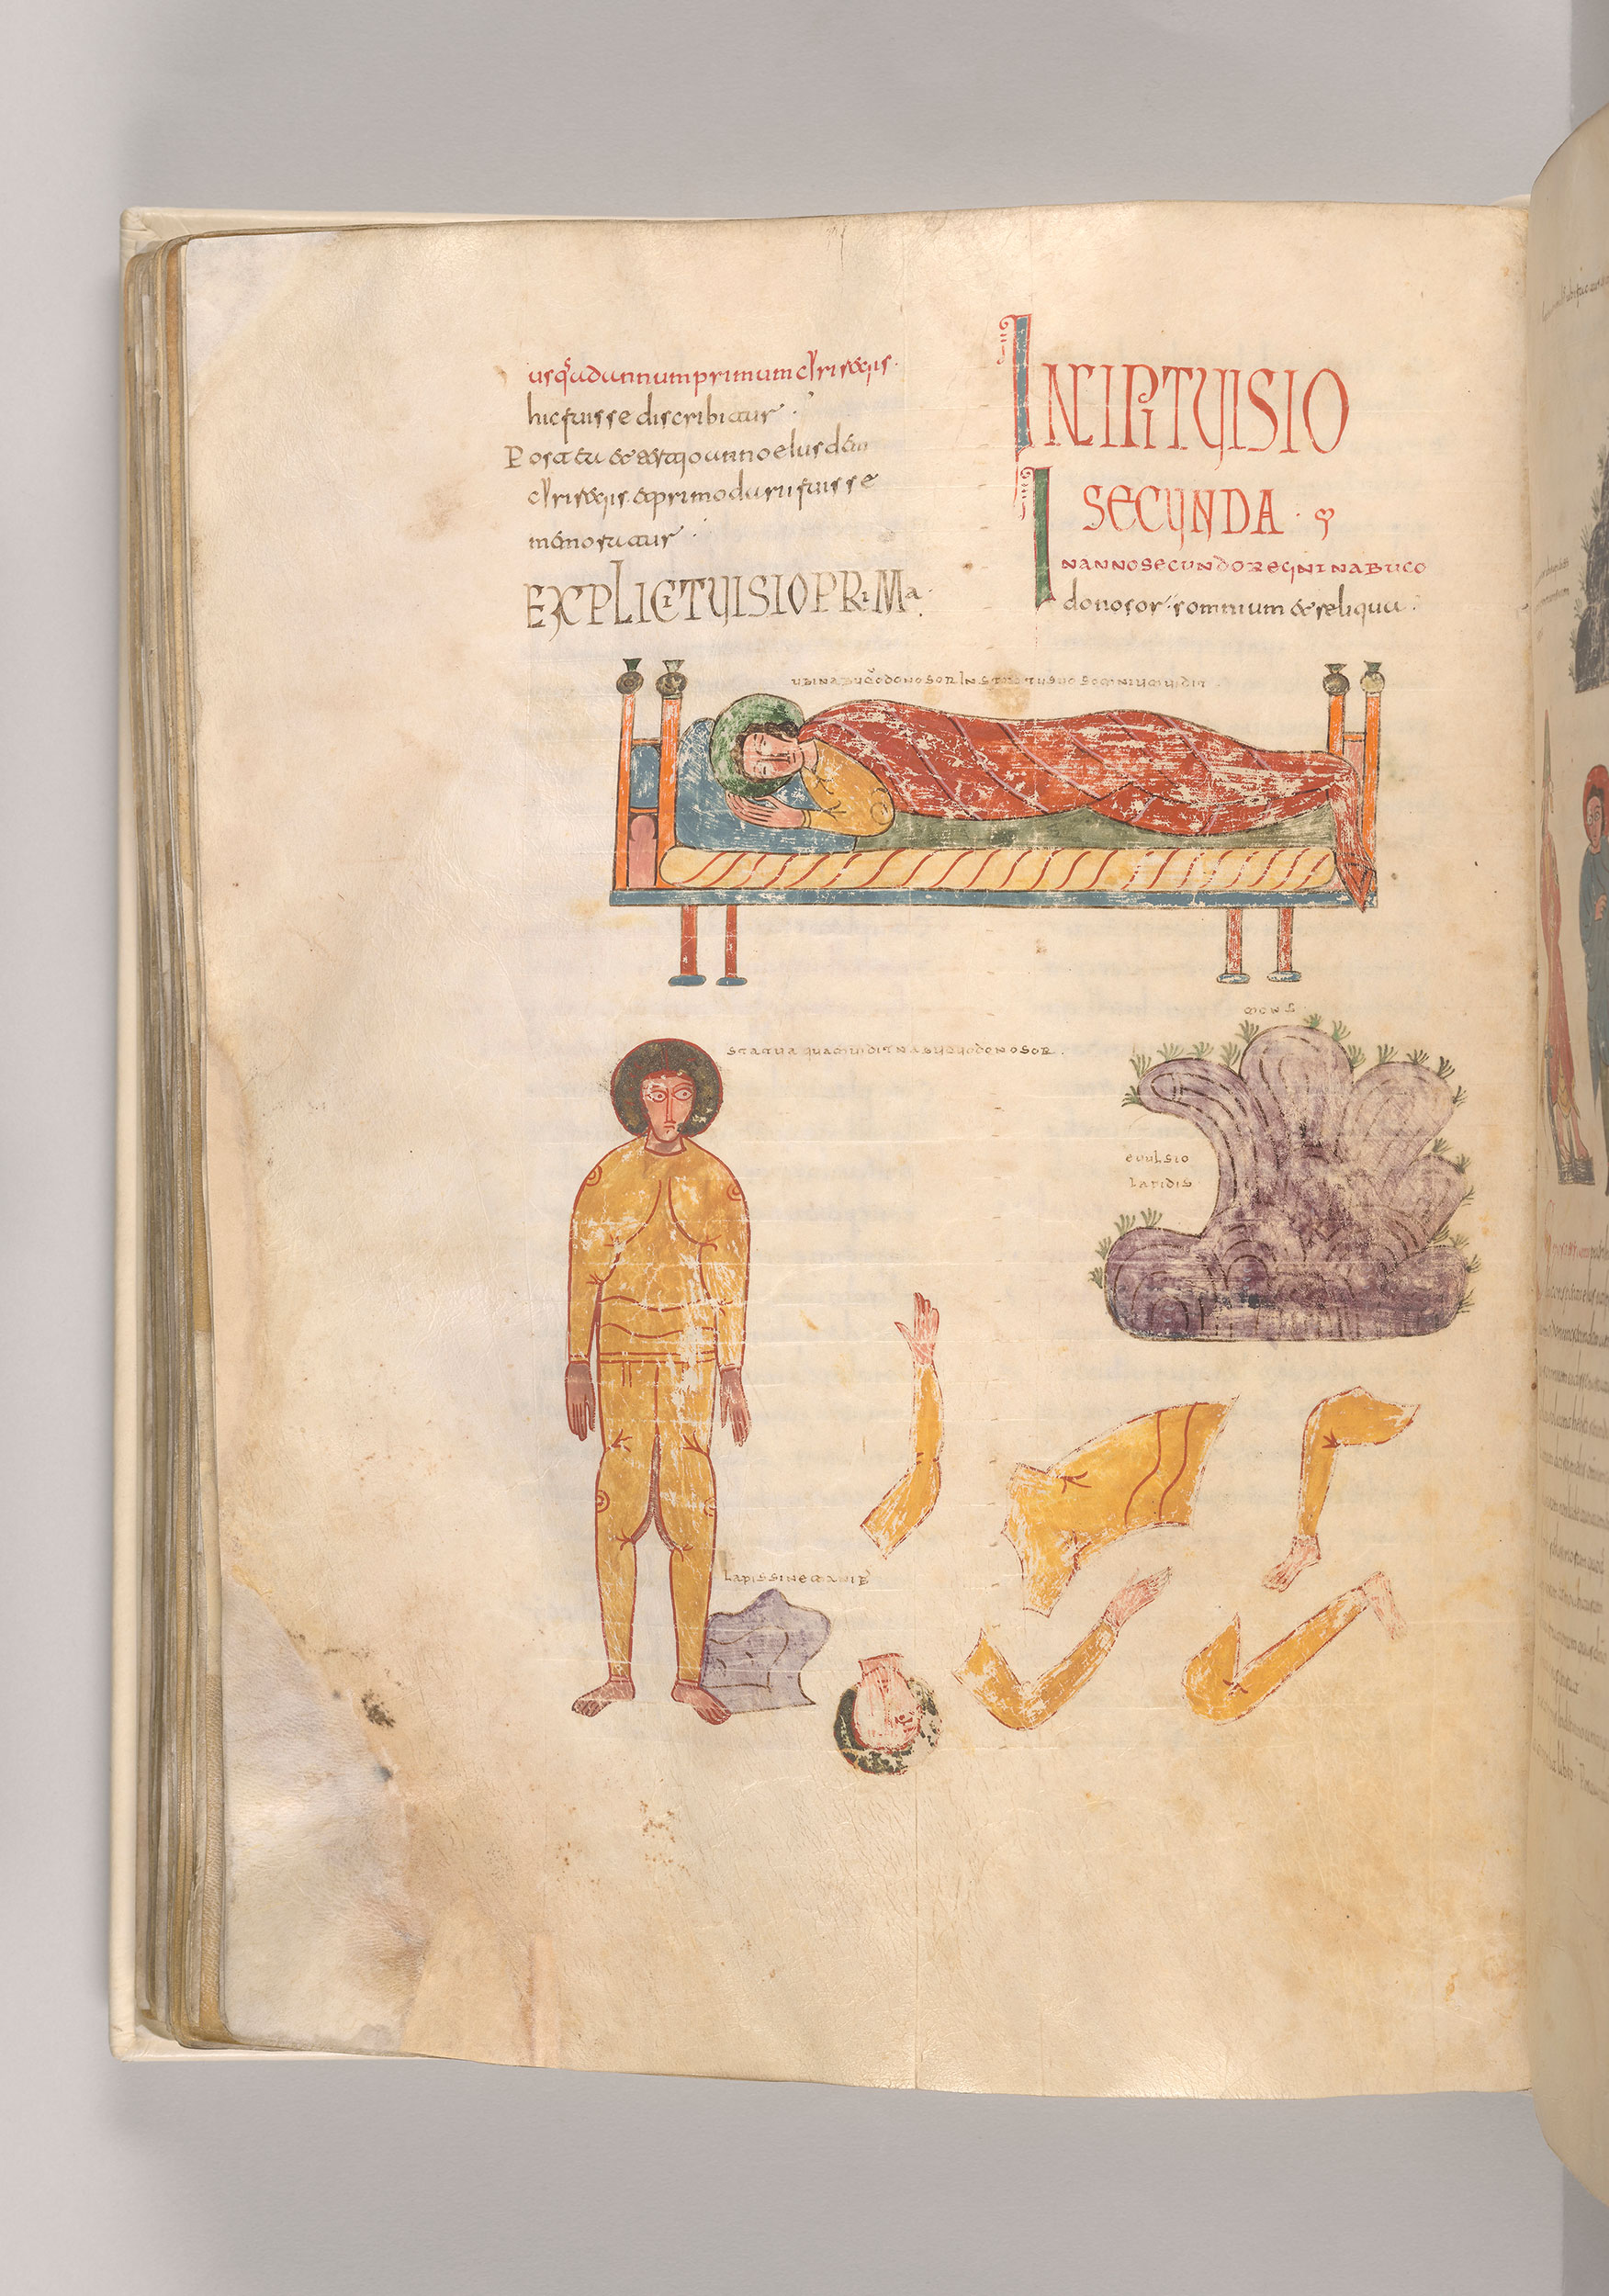 usq; ad annum primum cyri regis.
hic fuisse discribitur.
Postea uero tertio anno eiusdem
cyri regis a primo darii fuisse
memoratur
EXPLICIT VISIO PRIMa.
INCIPIT VISIO
SECUNDA
IN ANNO SECUNDO REGNI NABUCO
donosor somnium et reliqua.
UBI NABUQODONOSOR IN STRATU SUO SOMNIUM UIDIT
STATUA QUAM UIDIT NABUQUODONOSOR.
MONS
EUULSIO
LAPIDIS
LAPIS SINE MANIB